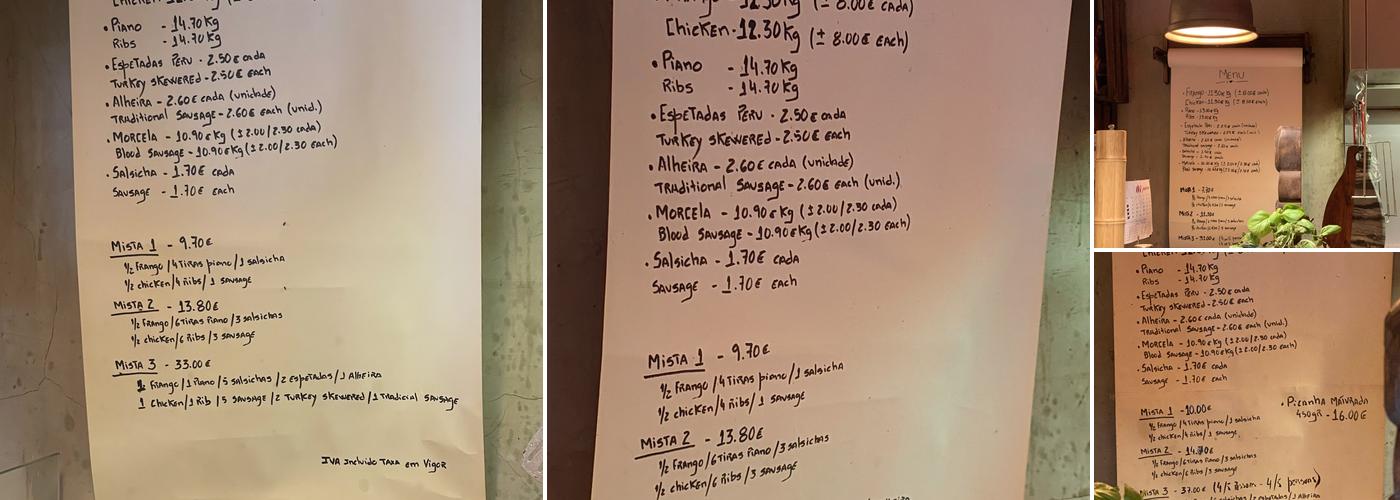 • Piano - 14.70 Kg
Ribs - 14.70 Kg
• Espetadas Peru - 2.50 € cada
Turkey Skewered - 2.50 € each
• Alheira - 2.60 € cada (unidade)
Traditional Sausage - 2.60 € each (unid.)
• Morcela - 10.90 € Kg (± 2.00/2.30 cada)
Blood Sausage - 10.90 € Kg (± 2.00/2.30 each)
• Salsicha - 1.70 € cada
Sausage - 1.70 € each
Mista 1 - 9.70 €
1/2 Frango / 4 Tiras piano / 1 salsicha
1/2 chicken / 4 Ribs / 1 sausage
Mista 2 - 13.80 €
1/2 Frango / 6 Tiras Piano / 3 salsichas
1/2 chicken / 6 Ribs / 3 sausage
Mista 3 - 33.00 €
1 Frango / 1 Piano / 5 salsichas / 2 espetadas / 1 Alheira
1 Chicken / 1 Rib / 5 Sausage / 2 Turkey Skewered / 1 Tradicial Sausage
IVA Incluido Taxa em Vigor
Chicken - 12.30 Kg (± 8.00 € each)
• Piano - 14.70 Kg
Ribs - 14.70 Kg
• Espetadas Peru - 2.50 € cada
Turkey Skewered - 2.50 € each
• Alheira - 2.60 € cada (unidade)
Traditional Sausage - 2.60 € each (unid.)
• Morcela - 10.90 € Kg (± 2.00/2.30 cada)
Blood Sausage - 10.90 € Kg (± 2.00/2.30 each)
• Salsicha - 1.70 € cada
Sausage - 1.70 € each
Mista 1 - 9.70 €
1/2 Frango / 4 Tiras piano / 1 salsicha
1/2 chicken / 4 Ribs / 1 sausage
Mista 2 - 13.80 €
1/2 Frango / 6 Tiras Piano / 3 salsichas
1/2 chicken / 6 Ribs / 3 sausage
Menu
Mista 1
Mista 2
Mista 3
• Piano - 14.70 Kg
Ribs - 14.70 Kg
• Espetadas Peru - 2.50 € cada
Turkey Skewered - 2.50 €
• Alheira - 2.60 € cada (unidade)
Traditional Sausage - 2.60 € each (unid.)
• Morcela - 10.90 € Kg (± 2.00/2.30 cada)
Blood Sausage - 10.90 € Kg (± 2.00/2.30 each)
• Salsicha - 1.70 € cada
Sausage - 1.70 € each
Mista 1 - 10.00 €
1/2 Frango / 4 Tiras piano / 1 salsicha
1/2 chicken / 4 Ribs / 1 sausage
• Picanha Maturada
450gr - 16.00 €
Mista 2
1/2 Frango / 6 Tiras Piano / 3 salsichas
1/2 chicken / 6 Ribs / 3 sausage
Mista 3 - 37.00 €